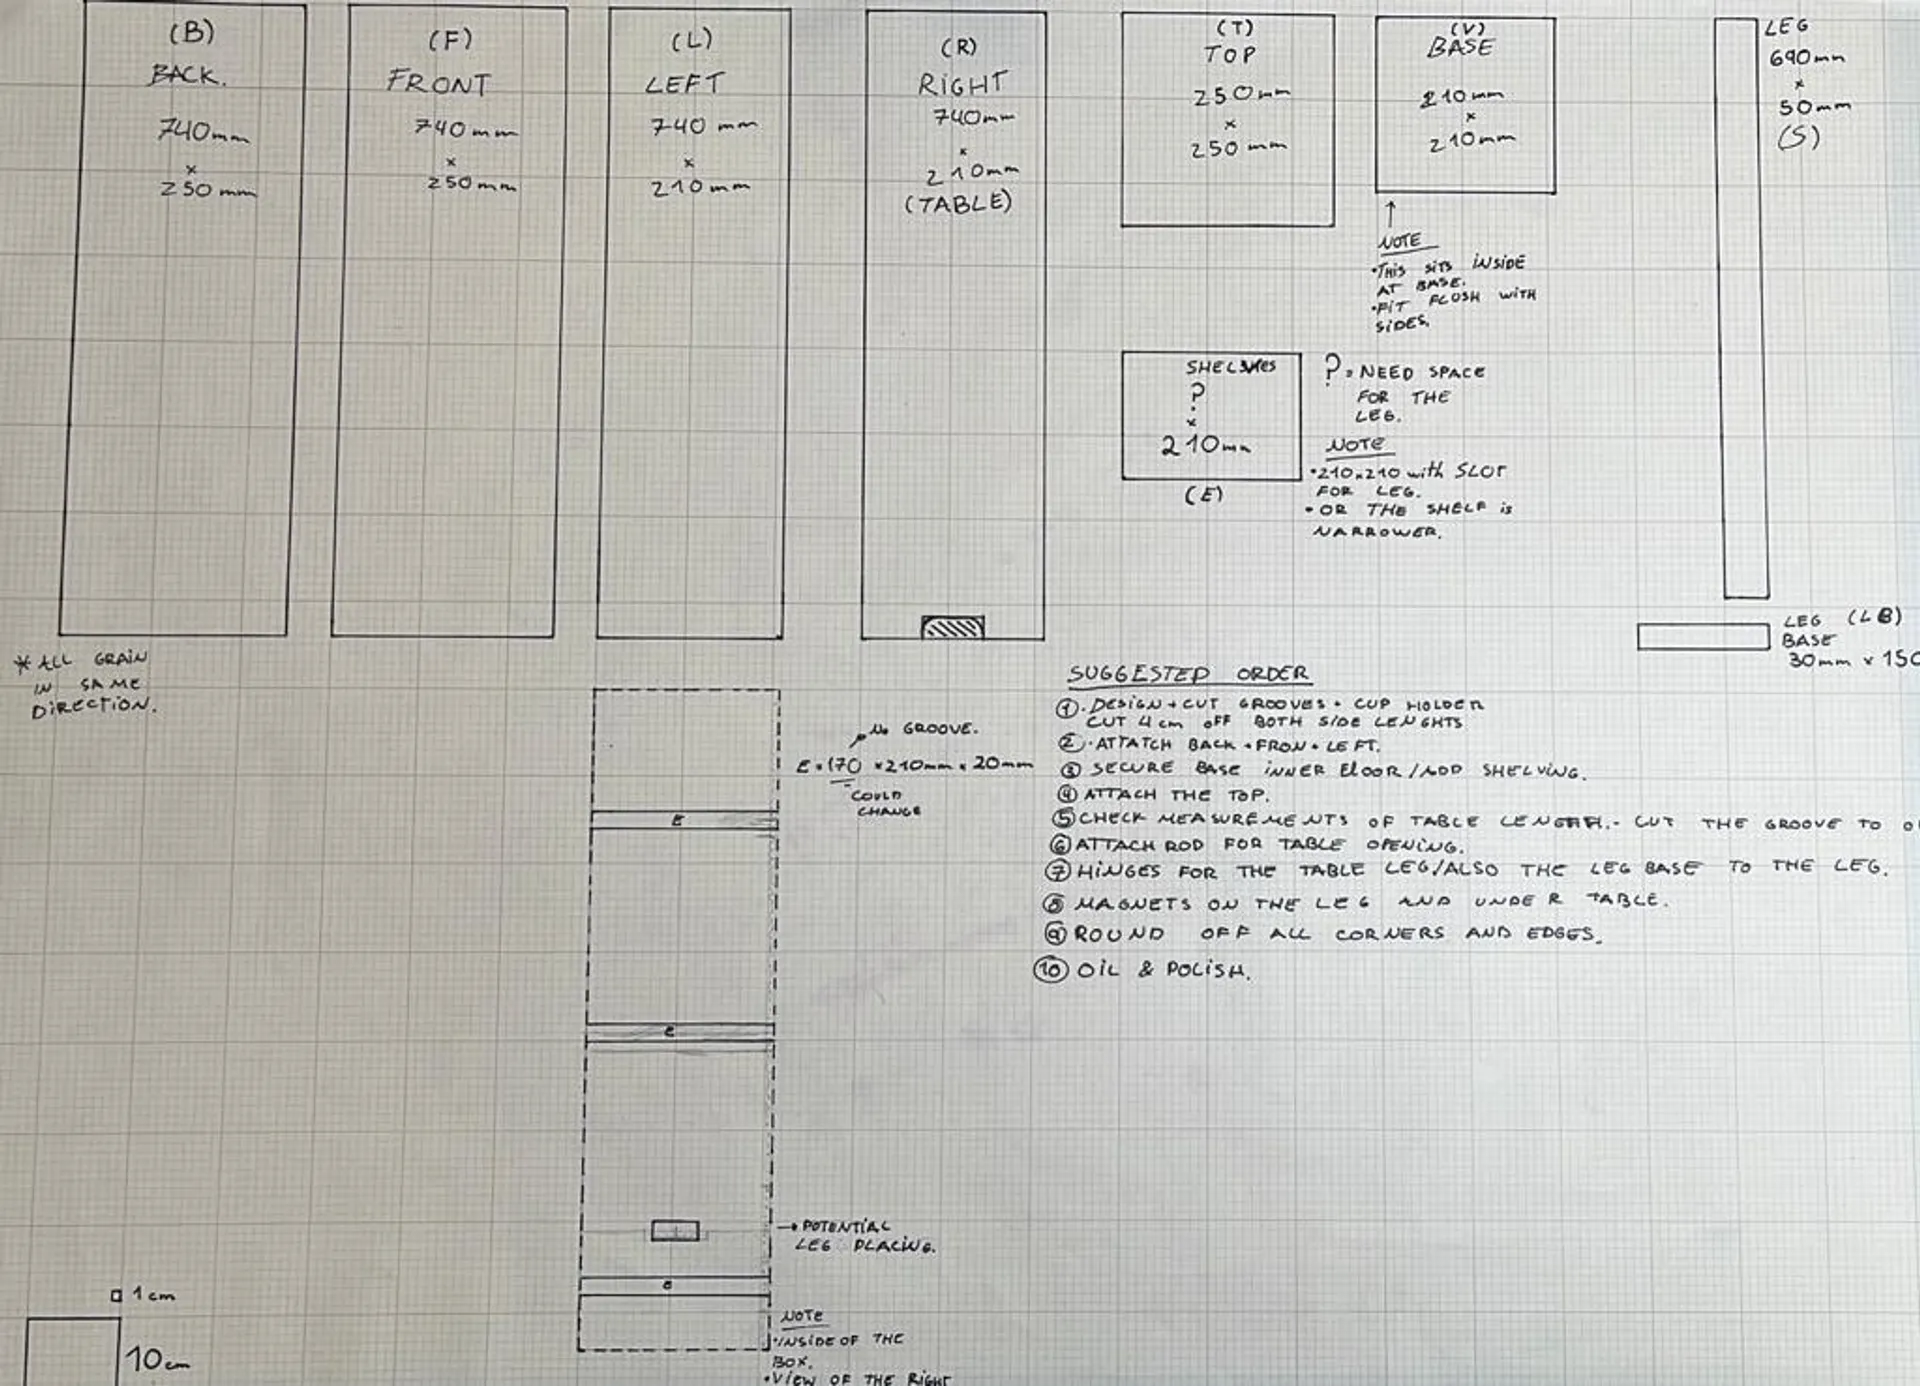 (B)
BACK.
740mm
x
250mm
(F)
FRONT
740mm
x
250mm
(L)
LEFT
740 mm
x
210mm
(R)
RIGHT
740mm
x
210mm
(TABLE)
(T)
TOP
250mm
x
250mm
(V)
BASE
210mm
x
210mm
NOTE
•THIS SITS INSIDE
AT BASE.
•FIT FLUSH WITH
SIDES.
LEG
690mm
x
50mm
(S)
SHELVES
?
x
210mm
(E)
? = NEED SPACE
FOR THE
LEG.
NOTE
•210x210 with SLOT
FOR LEG.
• OR THE SHELF is
NARROWER.
LEG (LB)
BASE
30mm x 150
* ALL GRAIN
IN SAME
DIRECTION.
SUGGESTED ORDER
①. DESIGN + CUT GROOVES + CUP HOLDER
CUT 4cm OFF BOTH SIDE LENGHTS
②. ATTATCH BACK + FRON + LEFT.
③ SECURE BASE INNER FLOOR/ADD SHELVING.
④ ATTACH THE TOP.
⑤ CHECK MEASUREMENTS OF TABLE LENGTH. - CUT THE GROOVE TO
⑥ ATTACH ROD FOR TABLE OPENING.
⑦ HINGES FOR THE TABLE LEG/ALSO THE LEG BASE TO THE LEG.
⑧ MAGNETS ON THE LEG AND UNDER TABLE.
⑨ ROUND OFF ALL CORNERS AND EDGES.
⑩ OIL & POLISH.
NO GROOVE.
E = 170 x 210mm x 20mm
COULD
CHANGE
E
E
E
→ POTENTIAL
LEG PLACING.
NOTE
•INSIDE OF THE
BOX.
•VIEW OF THE RIGHT
1cm
10cm